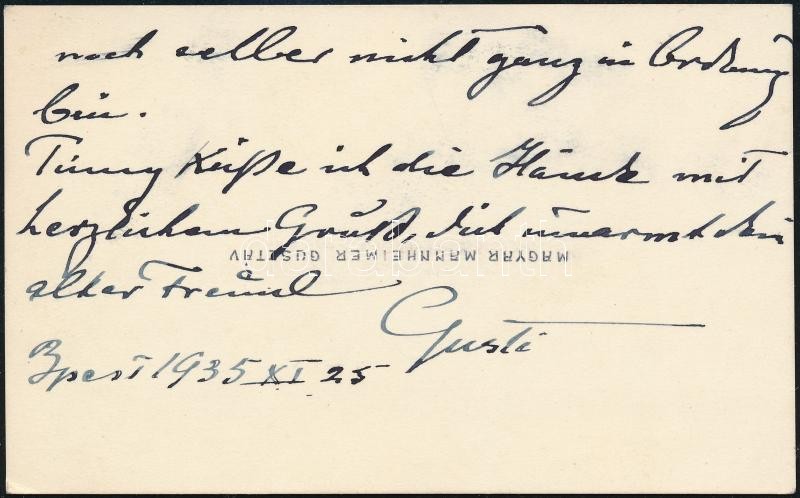 noch selber nicht ganz in Ordnung
bin.
Timmy Küße ich die Hände mit
herzlichem Gruß, dich umarmt dein
MAGYAR MANNHEIMER GUSZTÁV
alter Freund
Gusti
Bpest 1935 XI 25